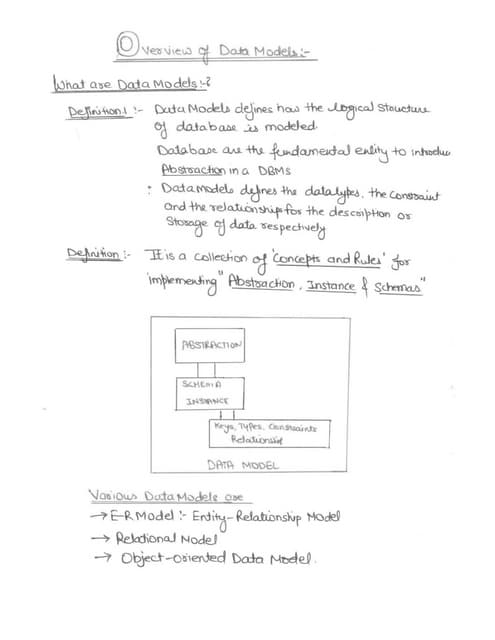 Overview of Data Models:-
What are Data Models:-?
Definition1 :- Data Models defines how the logical structure
of database is modeled.
Database are the fundamental entity to introduc
Abstraction in a DBMS
: Data models defines the datatypes, the constraint
and the relationship for the description or
storage of data respectively
Definition :- It is a collection of 'Concepts and Rules' for
implementing "Abstraction, Instance & Schemas"
ABSTRACTION
SCHEMA
INSTANCE
Keys, Types, Constraints
Relationship
DATA MODEL
Various Data Models are
→ E-R Model :- Entity-Relationship Model
→ Relational Model
→ Object-oriented Data Model.